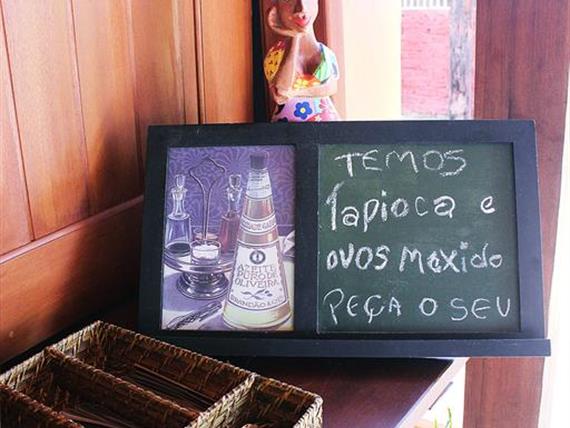 AZEITE
PURO DE
OLIVEIRA
BRANDÃO & CIA
TEMOS
Tapioca e
ovos Mexido
PEÇA O SEU